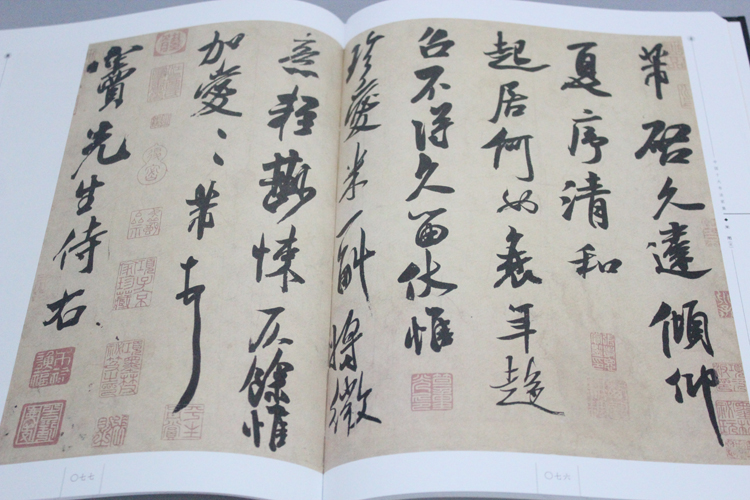 芾啓久違傾仰
夏序清和
起居何如衰年趨
召不得久留伏惟
珍愛米一斛將微
意輕尠悚仄餘惟
加愛〻芾頓首
竇先生侍右
〇七六
〇七七